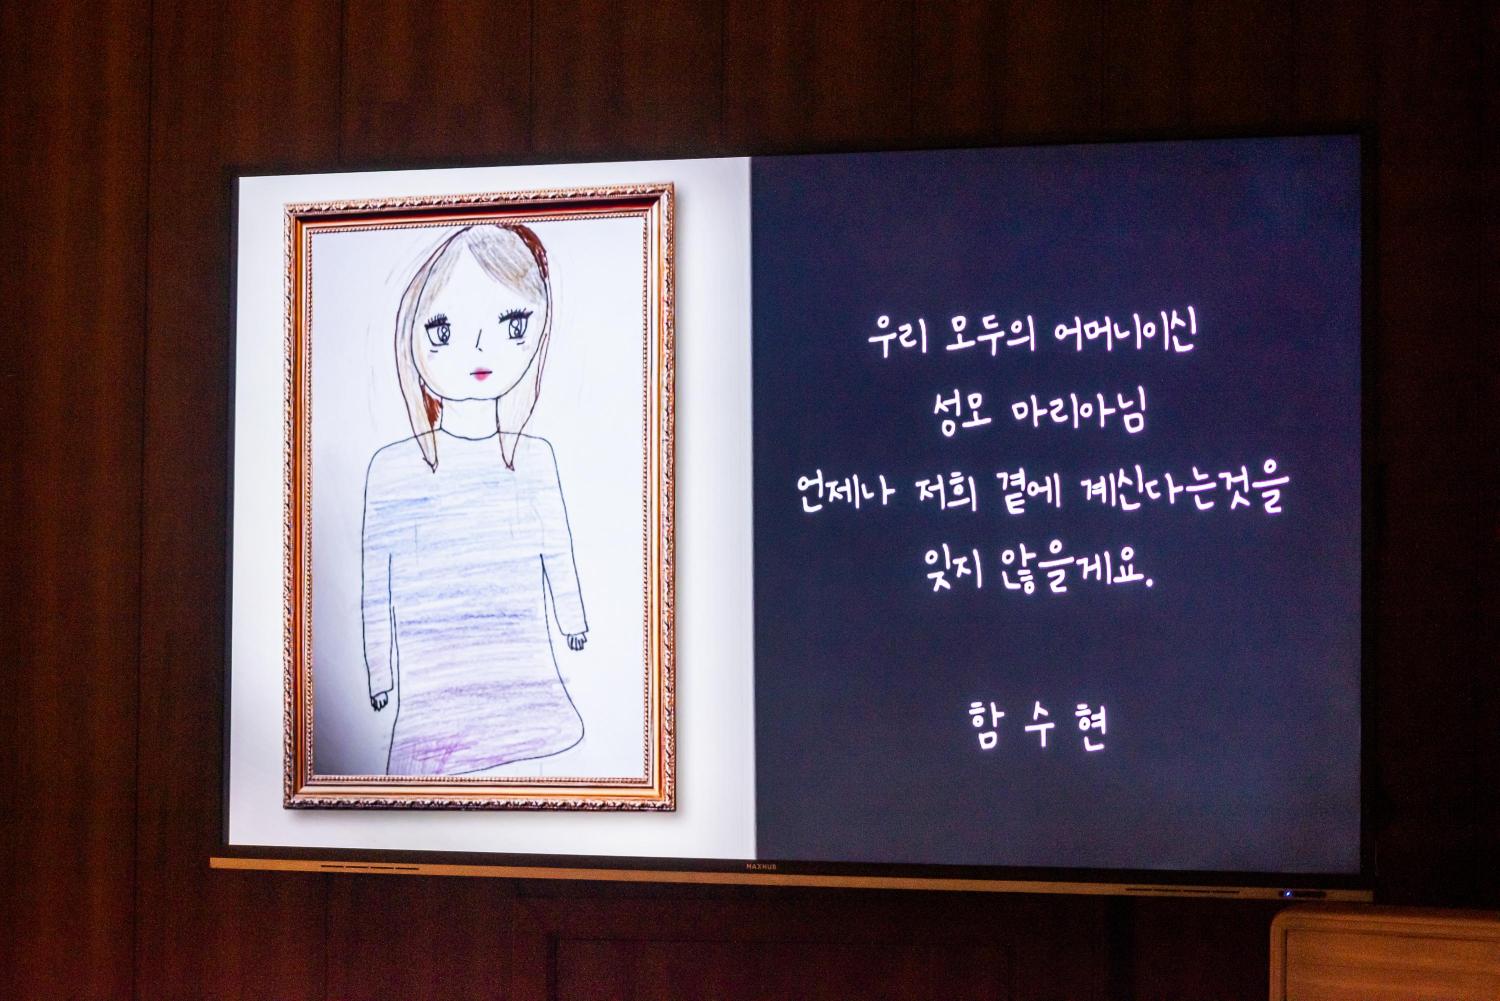 우리 모두의 어머니이신
성모 마리아님
언제나 저희 곁에 계신다는것을
잊지 않을게요.
함 수 현
MAXHUB